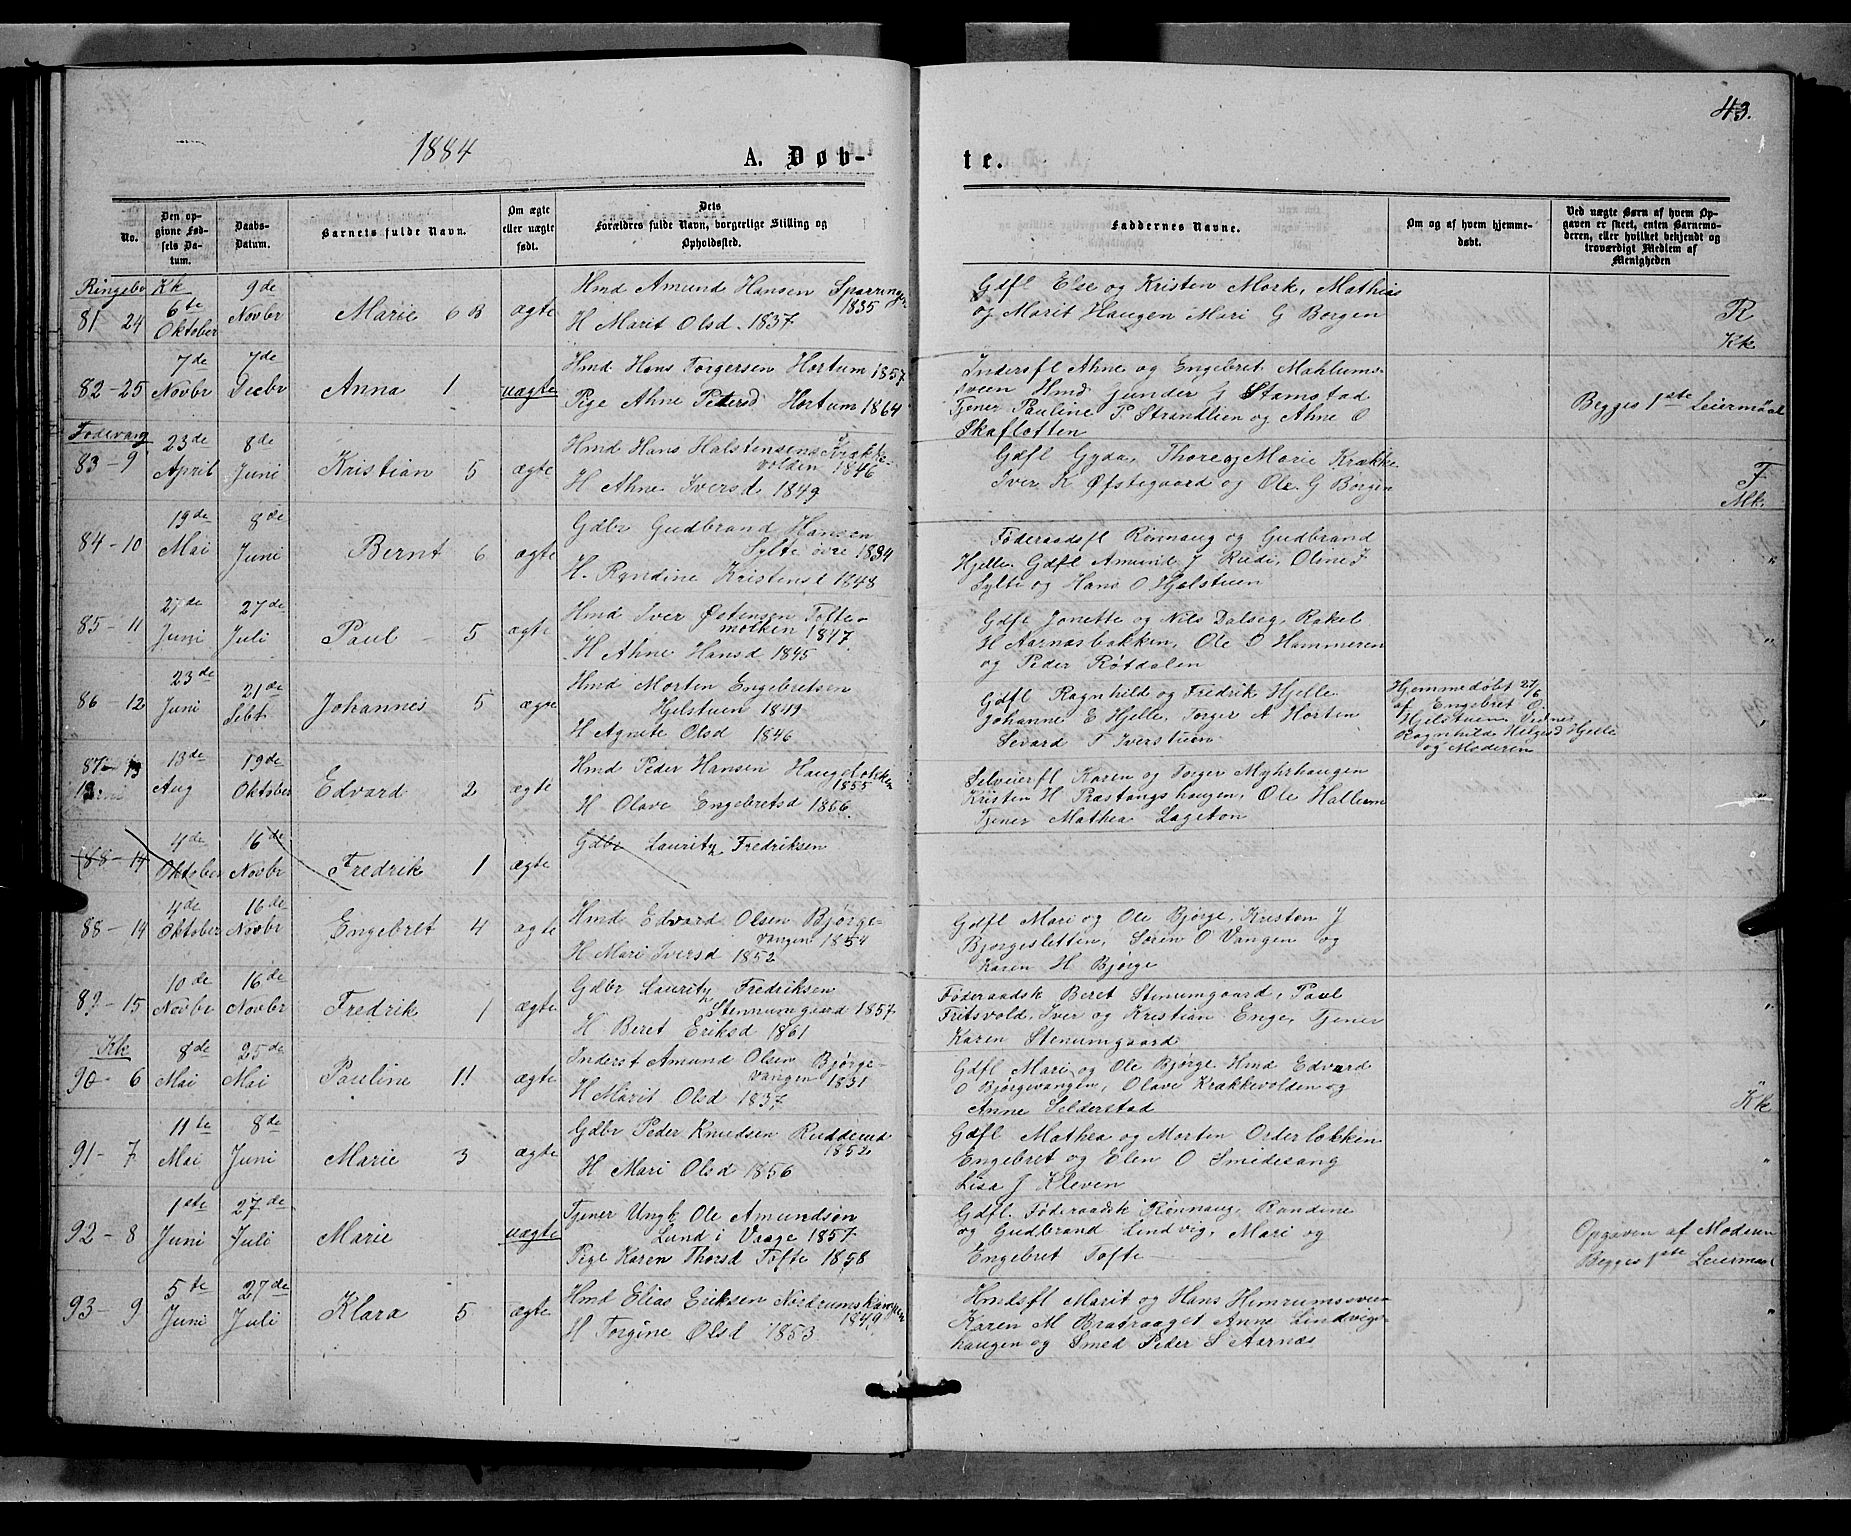 43.
1884
A. Døb-
te.
No.
Den op-
givne Fød-
sels Da-
tum.
Daabs-
Datum.
Barnets fulde Navn.
Om ægte
eller uægte
født.
Dets
Forældres fulde Navn, borgerlige Stilling og
Opholdssted.
Faddernes Navne.
Om og af hvem hjemme-
døbt.
Ved uægte Børn af hvem Op-
gaven er skeet, enten Barnemo-
deren, eller hvilket bekjendt og
troværdigt Medlem af
Menigheden
Ringebo Kk
81 24
6te
Oktober
9de
Novbr
Marie 6 B
ægte
Hmd Amund Hansen Sparringen
1835
H Marit Olsd. 1837.
Gdfl Else og Kristen Mork, Mathias
og Marit Haugen Mari G Borgen
R
Kk
82-25
7de
Novbr
7de
Decbr
Anna 1
uægte
Hmd Hans Torgersen Hortum 1857
Pige Ahne Petersd Hortum 1864
Indersfl Ahne og Engebret Mahlums-
sveen Hmd Gunder G Stamstad
Tjener Pauline P. Strandlien og Ahne O
Skaflotten
Begges 1ste Leiermaal
Fodevang
83-9
23de
April
8de
Juni
Kristian 5
ægte
Hmd Hans Halstensen Krække-
volden 1846
H Ahne Iversd 1849
Gdfl Gyda, Thore og Marie Krække
Iver K Øfstegaard og Ole G Borgen
F
Mk.
84-10
19de
Mai
8de
Juni
Bernt 6
ægte
Gdbr Gudbrand Hansen
Sylte øvre 1834
H. Ryndine Kristensd 1848
Føderaadsfl Rønnaug og Gudbrand
Hjelle. Gdfl Amund J Rude, Oline J
Sylte og Hans O Hjelstuen
"
85-11
27de
Juni
27de
Juli
Paul 5
ægte
Hmd Iver Østensen Tofte-
moeken 1847.
H Ahne Hansd 1845
Gdfl Jonette og Nils Dalseg, Rakel
H Aarnæsbakken, Ole O Hammeren
og Peder Røtdalen
"
86-12
23de
Juni
21de
Sebt
Johannes 5
ægte
Hmd Morten Engebretsen
Hjelstuen 1849
H Agnete Olsd 1846
Gdfl Ragnhild og Fredrik Hjelle
Johanne E Hjelle, Torger A Horten
Sevard T Iverstuen
Hjemmedøbt 27/6
af Engebret O.
Hjelstuen. Vidner
Ragnhilde Helgesd Hjelle
og Moderen
"
87-13
13de
Aug
19de
Oktober
Edvard 2
ægte
Hmd Peder Hansen Haugelokken
1855
H Olave Engebretsd 1856.
Selveierfl Karen og Torger Myhrhaugen
Kristen H Præstangshaugen, Ole Hallum
Tjener Mathea Lageton
"
88-14
4de
Oktober
16de
Novbr
Fredrik 1
ægte
Gdbr Lauritz Fredriksen
88-14
4de
Oktober
16de
Novbr
Engebret 4
ægte
Hmd Edvard Olsen Bjørge-
vangen 1854
H Mari Iversd 1852
Gdfl Mari og Ole Bjørge, Kristen J
Bjorgesletten, Søren O Vangen og
Karen H Bjørge
89-15
10de
Novbr
16de
Novbr
Fredrik 1
ægte
Gdbr Lauritz Fredriksen
Stennumgaard 1857
H Beret Eriksd 1861
Føderaadsk Beret Stenumgaard, Paul
Fritsvold, Iver og Kristian Enge, Tjener
Karen Stenumgaard
"
Kk
90-6
8de
Mai
25de
Mai
Pauline 11
ægte
Inderst Amund Olsen Bjørge-
vangen 1831
H Marit Olsd 1837
Gdfl Mari og Ole Bjørge Hmd Edvard
O Bjørgevangen, Olave Krækkevolden og
Anne Selderstad
"
Kk
91-7
11te
Mai
8de
Juni
Marie 3
ægte
Gdbr Peder Knudsen Ruddend
1852
H Mari Olsd 1856
Gdfl Mathea og Morten Orderløkken
Engebret og Elen O Smidesang
Lisa J Kleven
"
92-8
1ste
Juni
27de
Juli
Marie
uægte
Tjener Ungk Ole Amundsøn
Lund i Vaage 1857
Pige Karen Thorsd Tofte 1858
Gdfl. Føderaadsk Rønnaug, Randine
og Gudbrand Lindvig, Mari og
Engebret Tofte
Opgaven af Moderen
Begges 1ste Leiermaal
93-9
5te
Juni
27de
Juli
Klara 5
ægte
Hmd Elias Eriksen Nordrumskampen
1849
H Torgine Olsd 1853
Hmdsfl Marit og Hans Himrumssveen
Karen M Bratraaget Anne Lindvigs-
haugen og Smed Peder S Aarnæs
"